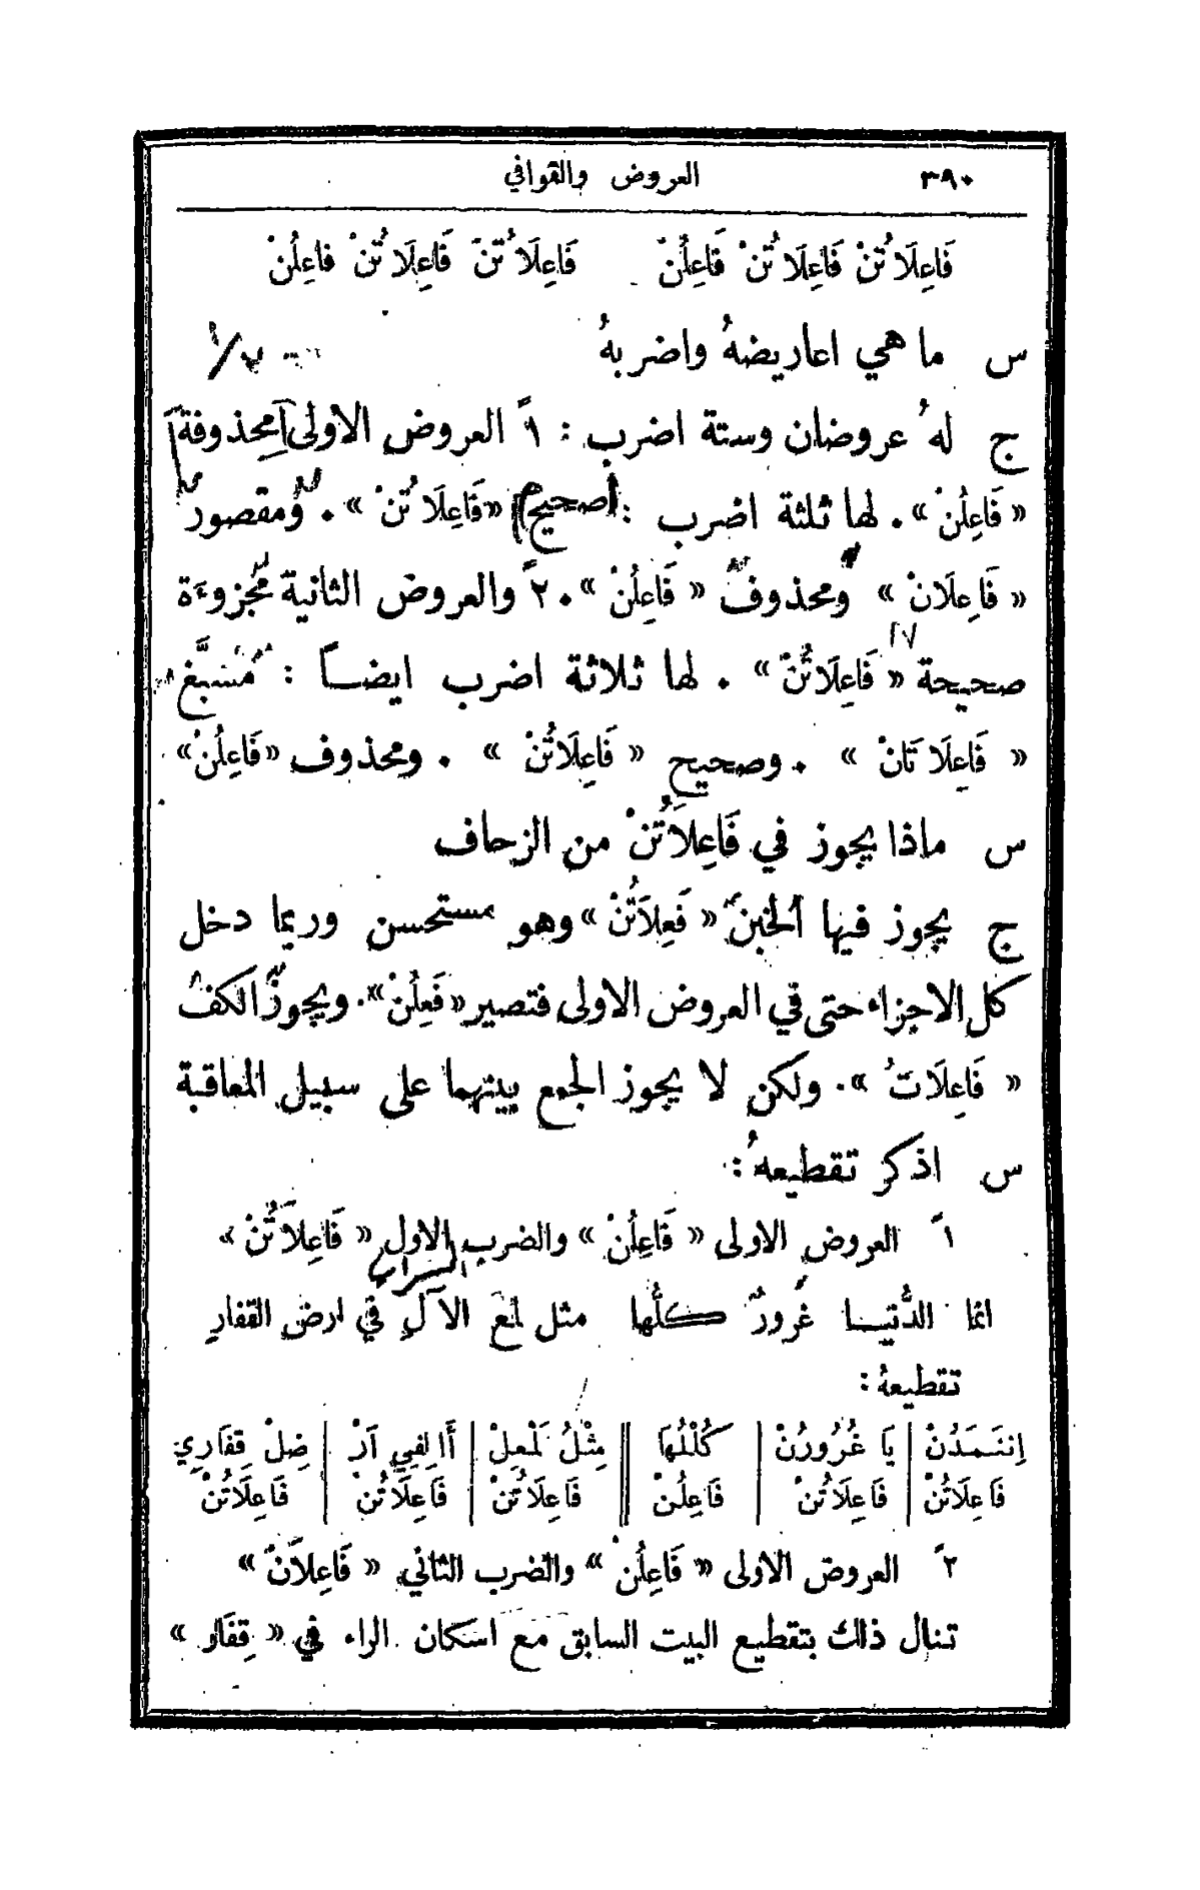 ٣٩٠ العروض والقوافي
فَاعِلَاتُنْ فَاعِلَاتُنْ فَاعِلُنْ فَاعِلَاتُنْ فَاعِلَاتُنْ فاعِلُنْ
س ما هي اعاريضهُ واضربهُ
ج لهُ عروضان وستة اضرب : ١ً العروض الاولى محذوفة
« فَاعِلُنْ » . لها ثلثة اضرب : صحيح « فَاعِلَاتُنْ » . ومقصور
« فَاعِلَانْ » ومحذوف « فَاعِلُنْ » . ٢ً والعروض الثانية مجزوءة
صحيحة « فَاعِلَاتُنْ » . لها ثلاثة اضرب ايضاً : مُسَبَّغ
« فَاعِلَاتَانْ » . وصحيح « فَاعِلَاتُنْ » . ومحذوف « فَاعِلُنْ »
س ماذا يجوز في فَاعِلَاتُنْ من الزحاف
ج يجوز فيها الخبن « فَعِلَاتُنْ » وهو مستحسن وربما دخل
كل الاجزاء حتى في العروض الاولى فتصير « فَعِلُنْ » . ويجوز الكف
« فَاعِلَاتُ » . ولكن لا يجوز الجمع بينهما على سبيل المعاقبة
س اذكر تقطيعهُ :
١ً العروض الاولى « فَاعِلُنْ » والضرب الاول « فَاعِلَاتُنْ »
السراب
انما الدُّنيا غُرورٌ كلُّها مثل لمعَ الآلِ في ارض القفارِ
تقطيعهُ :
اِنتَمَدُنْ | يَا غُرُورُنْ | كُلْلُهَا || مِثْلُ لَمْعِلْ | أَالِفِي اَرْ | ضِلْ قِفَارِي
فَاعِلَاتُنْ | فَاعِلَاتُنْ | فَاعِلُنْ || فَاعِلَاتُنْ | فَاعِلَاتُنْ | فَاعِلَاتُنْ
٢ً العروض الاولى « فَاعِلُنْ » والضرب الثاني « فَاعِلَانْ »
تنال ذاك بتقطيع البيت السابق مع اسكان الراء في « قِفَارْ »